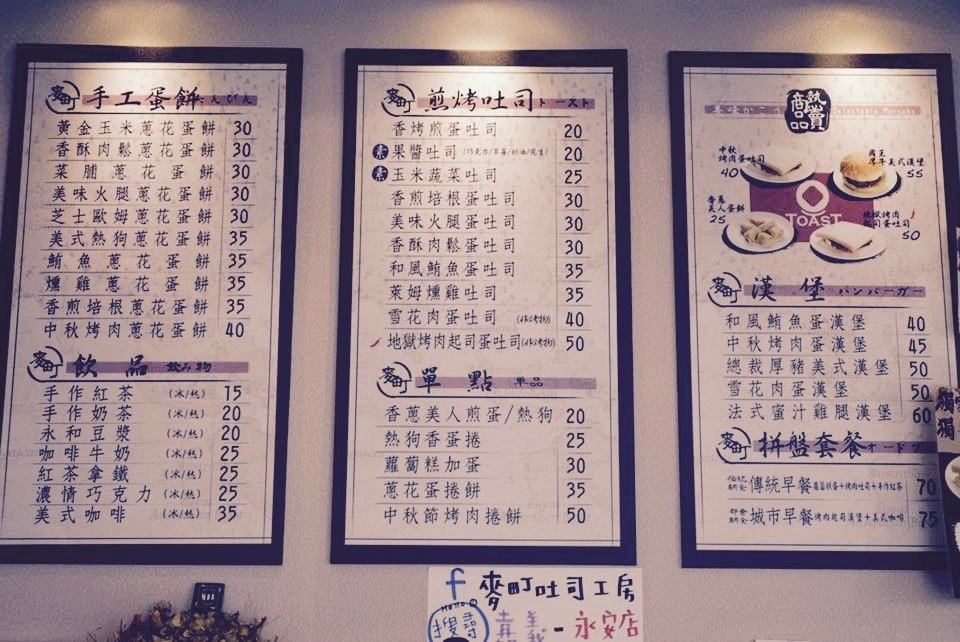 麥町 手工蛋餅
黃金玉米蔥花蛋餅 30
香酥肉鬆蔥花蛋餅 30
菜脯蔥花蛋餅 30
美味火腿蔥花蛋餅 30
芝士歐姆蔥花蛋餅 30
美式熱狗蔥花蛋餅 35
鮪魚蔥花蛋餅 35
燻雞蔥花蛋餅 35
香煎培根蔥花蛋餅 35
中秋烤肉蔥花蛋餅 40
麥町 飲品 飲み物
手作紅茶 (冰/熱) 15
手作奶茶 (冰/熱) 20
永和豆漿 (冰/熱) 20
咖啡牛奶 (冰/熱) 25
紅茶拿鐵 (冰/熱) 25
濃情巧克力 (冰/熱) 25
美式咖啡 (冰/熱) 35
麥町 煎烤吐司 トースト
香烤煎蛋吐司 20
素 果醬吐司 (巧克力/草莓/奶油/花生) 20
素 玉米蔬菜吐司 25
香煎培根蛋吐司 30
美味火腿蛋吐司 30
香酥肉鬆蛋吐司 30
和風鮪魚蛋吐司 35
萊姆燻雞吐司 35
雪花肉蛋吐司 40
地獄烤肉起司蛋吐司 50
麥町 單點 單品
香蔥美人煎蛋/熱狗 20
熱狗香蛋捲 25
蘿蔔糕加蛋 30
蔥花蛋捲餅 35
中秋節烤肉捲餅 50
熱賣商品
中秋烤肉蛋吐司 40
國王厚牛美式漢堡 55
香蔥美人蛋餅 25
地獄烤肉起司蛋吐司 50
TOAST
麥町 漢堡 ハンバーガー
和風鮪魚蛋漢堡 40
中秋烤肉蛋漢堡 45
總裁厚豬美式漢堡 50
雪花肉蛋漢堡 50
法式蜜汁雞腿漢堡 60
麥町 拼盤套餐 オード
傳統早餐 70
城市早餐 烤肉起司漢堡+美式咖啡 75
f 麥町吐司工房
搜尋 - 永安店